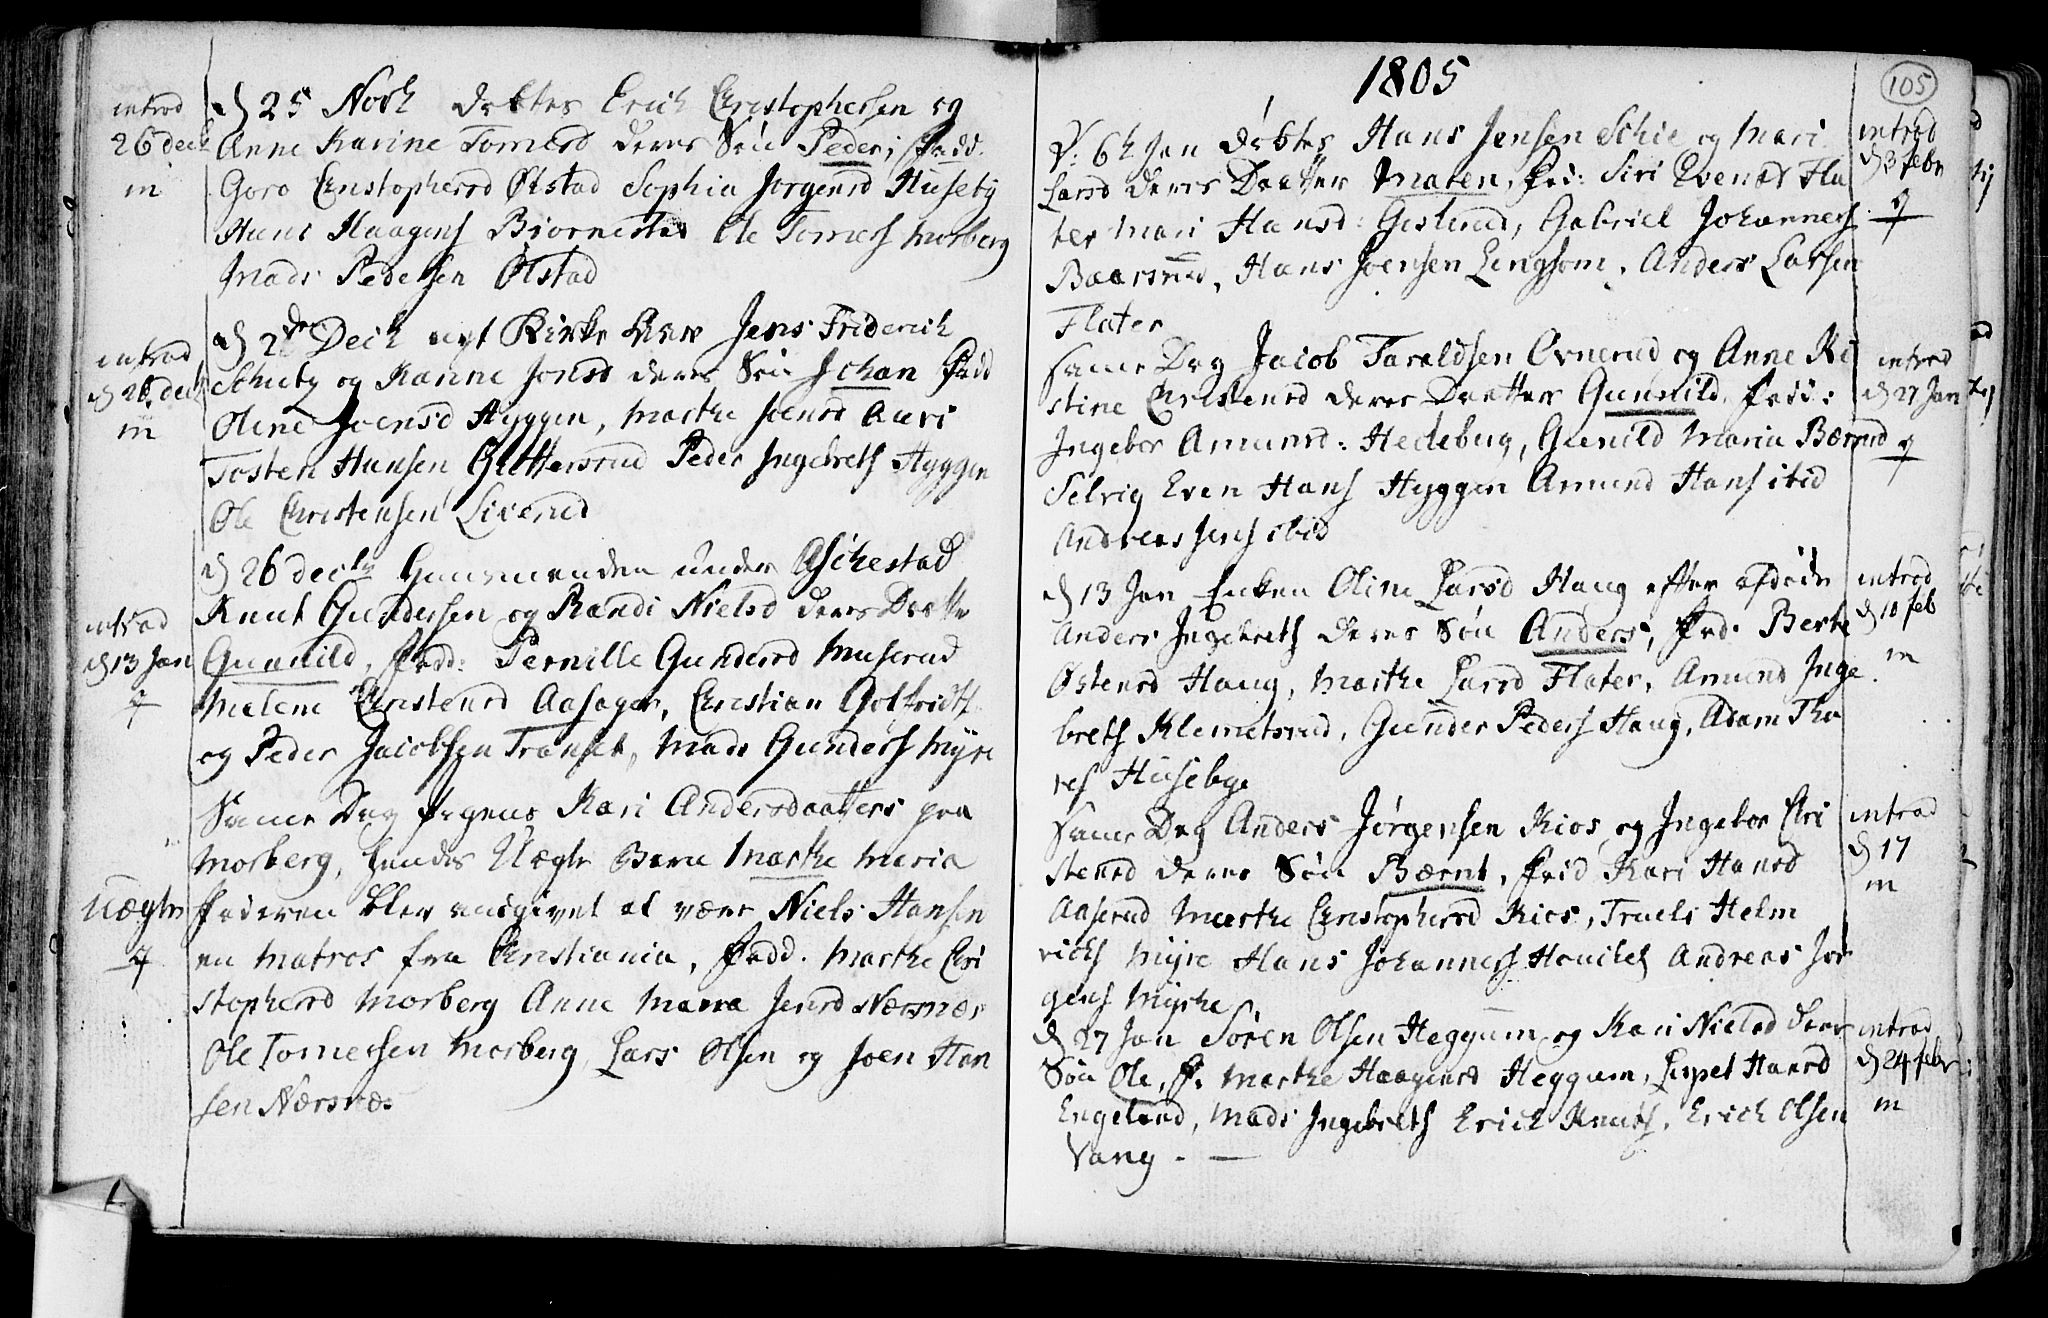 introd
26 dech
m
d 25 Novb døbtes Erich Christophersen og
Anne Karine Tomesd deres Søn Peder, Fadd:
Goro Christophersd Ølstad Sophia Jørgensd Huseby
Hans Haagens Biørnestad Ole Tomess Morberg
Mads Pedersen Ølstad
introd
d 26 dech
m
d 2den Dech Jens Friderich
Schuby og Karine Jonsd deres Søn Johan Fadd
Oline Joensd Hyggen, Marthe Joensd Auri
Tosten Hansen Guttersrud Peder Ingebreths Hyggen
Ole Christensen Liverud
introd
d 13 Jan
d 26 dech Huusmanden under Aschestad
Knut Gundersen og Randi Nielsd deres Daatter
Gunnild, Fadd: Pernille Gundersd Muserud
Malene Christensd Aasager, Christian
og Peder Jacobsen Transet, Mads Gunders Myre
Uægte
Same Dag Pigens Kari Andersdaatters paa
Morberg, hendes Uægte Barn Marthe Maria
Faderen blev angivet at være Niels Hansen
en Matros fra Christiania, Fadd. Marthe Chri
stophersd Morberg Anne Maria Jensd Nærsnæs
Ole Tomessen Morberg, Lars Olsen og Joen Han
sen Nærsnæs
1805
105
d: 6 Jan døbtes Hans Jensen Schie og Mari
Larsd deres Daatter Maren, Fad: Siri Evensd Fla
ter Mari Hansd: Gislerud, Gabriel Johanness
Baarsrud, Hans Joensen Lingsom, Anders Larsen
Flater
introd
d 3 febr
same Dag Jacob Taraldsen Ovnerud og Anne Ki
stine Christensd deres Daatter Gunnild. Fad:
Ingebor Amunsd: Hedebug, Gunild Maria Bærsrud
Selvig Even Hans Hyggen Amund Hans ibid
Andreas Jens ibid
introd
d 27 Jan
d 13 Jan Enken Oline Larsd Haug efter afdøde
Anders Ingebreths deres Søn Anders, Fad. Berte
Østensd Haug, Marthe Larsd Flater, Amund Inge
breths Klemetsrud, Gunder Peders Haug, Adam Tho
res Husebye
introd
d 10 feb
m
same Dag Anders Jørgensen Kios og Ingebor Chri
stensd deres Søn Bærnt, Fad Kari Hansd
Aaserud Marthe Christophersd Kios, Truels Helm
richs Myre Hans Johanness Andreas Jør
gens Myhre
introd
d 17
m
d 27 Jan Søren Olsen Heggum og Kari Nielsd deres
Søn Ole, F. Marthe Haagensd Heggum, Lispet Hansd
Engeland, Mads Ingebreths Erich Knuts, Erich Olsen
Vang. —
introd
d 24 febr
m